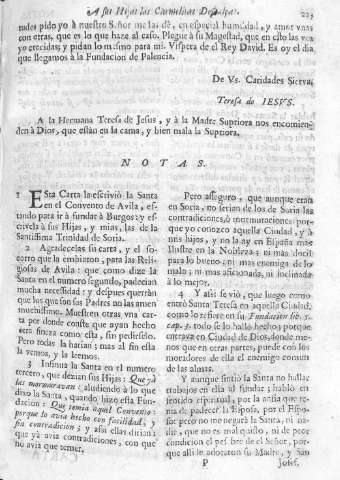 A sus Hijas las Carmelitas Descalças. 225
tudes pido yo à nuestro Señor me las dè, en especial humildad, y amor vnas
con otras, que es lo que haze al caso. Plegue à su Magestad, que en esto las vea
yo crecidas, y pidan lo mismo para mi. Vispera de el Rey David. Es oy el dia,
que llegamos à la Fundacion de Palencia.
De Vs. Caridades Sierva,
Teresa de IESVS.
A la Hermana Teresa de Jesus, y à la Madre Supriora nos encomien-
den à Dios, que estàn en la cama, y bien mala la Supriora.
NOTAS.
1 ESta Carta la escriviò la Santa
en el Convento de Avila, es-
tando para ir à fundar à Burgos: y es-
crivela à sus Hijas, y mias, las de la
Santissima Trinidad de Soria.
2 Agradecelas su carta, y el so-
corro que la embiaron, para las Reli-
giosas de Avila: que como dize la
Santa en el numero segundo, padecian
mucha necessidad: y despues querràn
que los que son sus Padres no las amen
muchissimo. Muestren otras vna car-
ta por donde conste que ayan hecho
otra fineza como esta, sin pedirselo.
Pero todas la harian; mas al fin esta
la vemos, y la leemos.
3 Insinua la Santa en el numero
tercero, que dezian sus Hijas: Que yà
las murmuravan: aludiendo à lo que
dixo la Santa, quando hizo esta Fun-
dacion: Que temia aquel Convento:
porque lo avia hecho con facilidad, y
sin contradicion; y assi ellas dician:
que yà avia contradiciones, con que
no avia que temer.
Pero asseguro, que aunque eran
en Soria, no serian de los de Soria las
contradiciones, ò murmuraciones: por-
que yo conozco aquella Ciudad, y à
mis hijos, y no la ay en España mas
ilustre en la Nobleza; ni mas docil
para lo bueno; ni mas enemiga de lo
malo; ni mas aficionada, ni inclinada
à lo mejor.
4 Y assi se viò, que luego como
entrò Santa Teresa en aquella Ciudad,
como lo refiere en su Fundacion lib. 5.
cap. 3. todo se lo hallò hecho: porque
entrava en Ciudad de Dios, donde me-
nos que en otras partes, puede con los
moradores de ella el enemigo comun
de las almas.
Y aunque sintiò la Santa no hallar
trabajos en ella al fundar; hablò en
sentido espiritual, por la ansia que te-
nia de padecer la Esposa, por el Espo-
so: pero no me negarà la Santa, ni na-
die, que no es mal quisto, ni de peor
condicion el pesebre de el Señor, por-
que alli le adoraron su Madre, y San
P Josef.